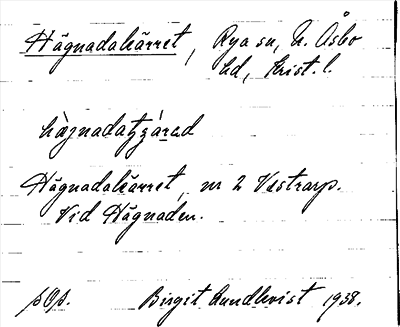 Hägnadakärret, Rya sn, N. Åsbo
hd, Krist. l.
Hägnadakärret, nr 2 Västrarp.
Vid Hägnaden.
Birgit Lundkvist 1938.